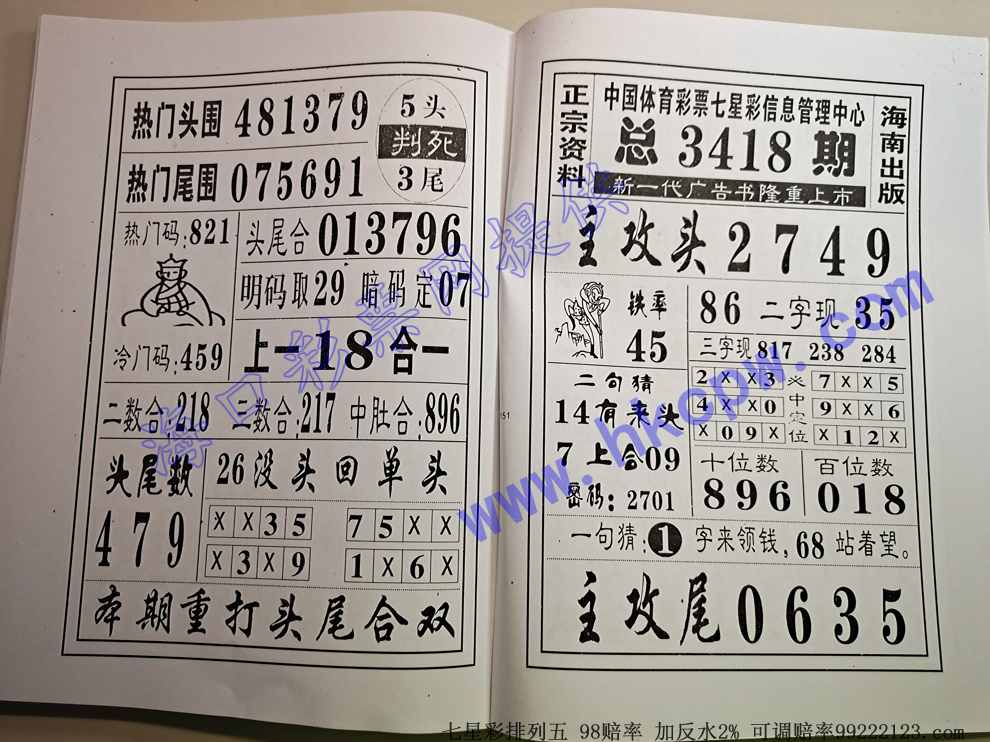 热门头围 481379
5头
判死
3尾
热门尾围 075691
热门码:821
头尾合 013796
明码取29 暗码定07
冷门码:459
上一18合一
二数合:218 三数合:217 中肚合:896
头尾数
479
26没头回单头
X X 3 5
7 5 X X
X 3 X 9
1 X 6 X
本期重打头尾合双
正宗资料
中国体育彩票七星彩信息管理中心
总 3418 期
新一代广告书隆重上市
海南出版
主攻头 2749
铁率
45
86 二字现 35
三字现 817 238 284
2 X X 3
4 X X 0
X 0 9 X
必中定位
7 X X 5
9 X X 6
X 1 2 X
二句猜
14有来头
7上合09
密码: 2701
十位数
896
百位数
018
一句猜:1字来领钱,68站着望。
主攻尾 0635
151
海口彩票网提供
www.hkcpw.com
七星彩排列五 98赔率 加反水2% 可调赔率99222123.com